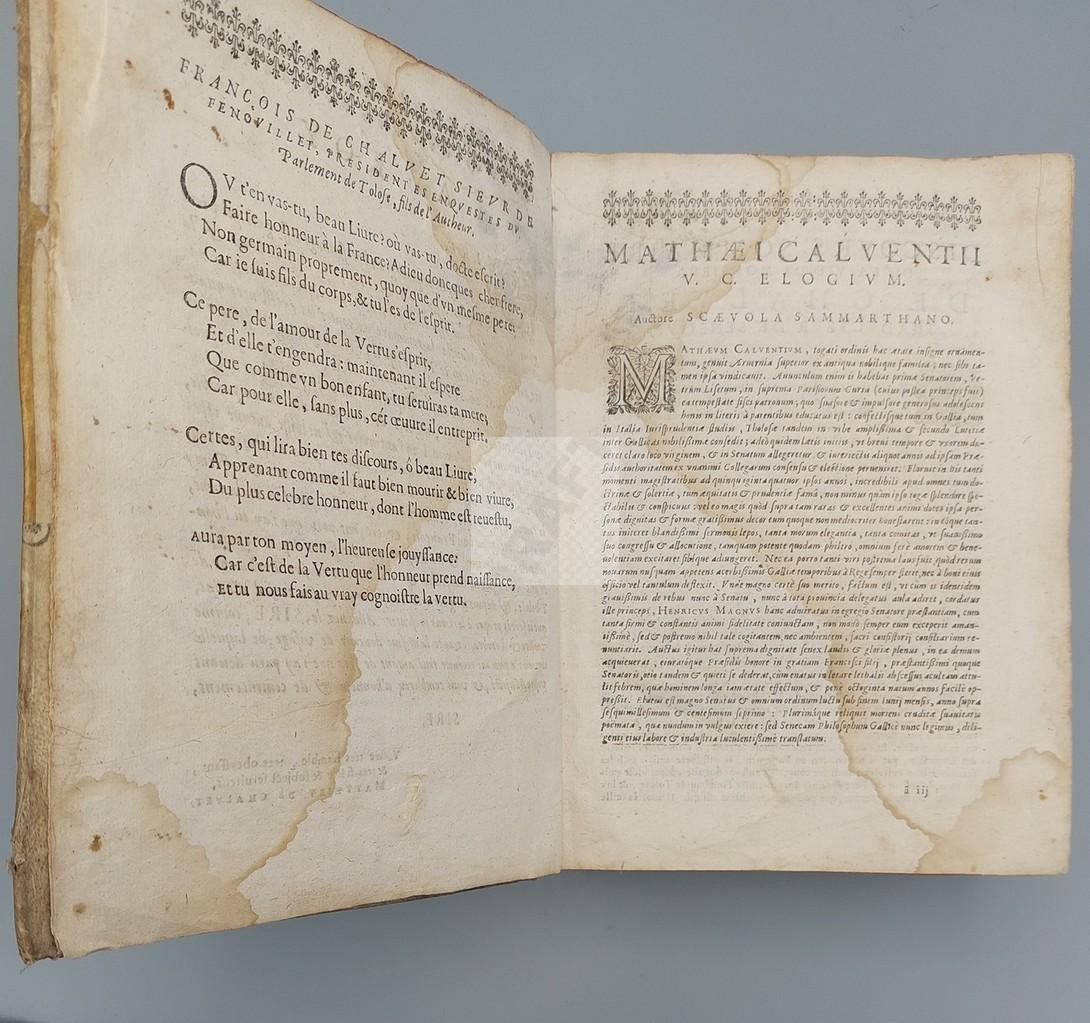 FRANÇOIS DE CHALVET SIEVR DE
FENOVILLET, PRESIDENT ES ENQVESTES DV
Parlement de Tolose, fils de l'Autheur.
OV t'en vas-tu, beau Liure? où vas-tu, docte escrit?
Faire honneur à la France? Adieu doncques cher frere,
Non germain proprement, quoy que d'vn mesme pere:
Car ie suis fils du corps, & tu l'es de l'esprit.
Ce pere, de l'amour de la Vertu s'esprit,
Et d'elle t'engendra: maintenant il espere
Que comme vn bon enfant, tu seruiras ta mere,
Car pour elle, sans plus, cét œuure il entreprit,
Certes, qui lira bien tes discours, ô beau Liure,
Apprenant comme il faut bien mourir & bien viure,
Du plus celebre honneur, dont l'homme est reuestu,
Aura par ton moyen, l'heureuse jouyssance:
Car c'est de la Vertu que l'honneur prend naissance,
Et tu nous fais au vray cognoistre la vertu.
MATHÆI CALVENTII
V. C. ELOGIVM.
Auctore SCÆVOLA SAMMARTHANO.
MATHÆVM CALVENTIVM, togati ordinis hac ætate insigne ornamen-
tum, genuit Aruernia superior ex antiqua nobilique familia; nec sibi ta-
men ipsa vindicauit. Auunculum enim is habebat primæ Senatorem, Pe-
trum Lisetum, in suprema Parisiorum Curia (cuius postea princeps fuit)
ea tempestate fisci patronum; quo suasore & impulsore generosus adolescens
bonis in literis à parentibus educatus est: confectisque tum in Gallia, tum
in Italia Iurisprudentiæ studiis, Tholosæ tandem in vrbe amplissima & secundo Lutetiæ
inter Gallicas nobilissimæ consedit; adeò quidem lætis initiis, vt breui tempore & vxorem du-
ceret claro loco virginem, & in Senatum allegeretur & interiectis aliquot annis ad ipsam Præ-
sidis authoritatem ex vnanimi Collegarum consensu & electione perueniret. Floruit in his tanti
momenti magistratibus ad quinquiginta quatuor ipsos annos, incredibili apud omnes tum do-
ctrinæ & solertiæ, tum æquitatis & prudentiæ famâ, non minùs quàm ipso togæ splendore spe-
ctabilis & conspicuus: vel eo magis quòd supra tam raras & excellentes animi dotes ipsa per-
sonæ dignitas & formæ gratissimus decor eum quoque non mediocriter honestarent: in eóque tan-
tus initeret blandissimi sermonis lepos, tanta morum elegantia, tanta comitas, vt suauissimo
suo congressu & allocutione, tamquam potente quodam philtro, omnium ferè amorem & bene-
uolentiam excitaret sibíque adiungeret. Nec ea porro tanti viri postrema laus fuit quòd rerum
nouarum nusquam appetens acerbissimis Galliæ temporibus à Rege semper stetit, nec à boni ciuis
officio vel tantulum deflexit. Vnde magno certè suo merito, factum est, vt cùm is identidem
grauissimis de rebus nunc à Senatu, nunc à tota prouincia delegatus aula adiret, cordatus
ille princeps, HENRICVS MAGNVS hanc admiratus in egregio Senatore præstantiam, cum
tanta firmi & constantis animi fidelitate coniunctam, non modò semper eum exceperit aman-
tissimè, sed & postremo nihil tale cogitantem, nec ambientem, sacri consistorij consiliarium re-
nuntiarit. Auctus igitur hac suprema dignitate senex laudis & gloriæ plenus, in ea demum
acquieuerat, eiuratóque Præsidis honore in gratiam Francisci filij, præstantissimi quoque
Senatoris, otio tandem & quieti se dederat, cùm enatus in latere lethalis abscessus acutam attu-
lit febrem, quæ hominem longa iam ætate effectum, & penè octoginta natum annos facilè op-
pressit. Elatus est magno Senatus & omnium ordinum luctu sub finem Iunij mensis, anno supra
sesquimillesimum & centesimum septimo: Plurimáque reliquit moriens eruditæ suauitatis
poëmata, quæ nundum in vulgus exiere: sed Senecam Philosophum Gallicè nunc legimus, dili-
genti eius labore & industria luculentissimè translatum.
ã iij